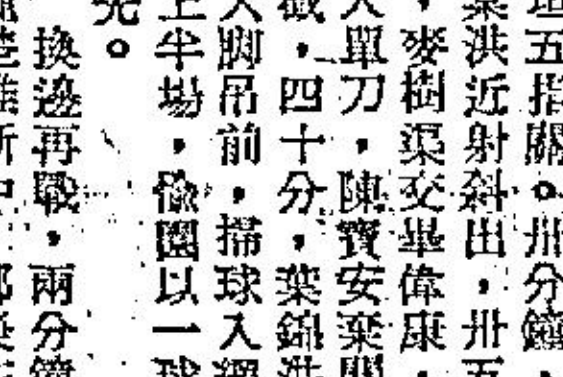 五指關。卅分鐘
葉洪近射斜出，卅五，
，麥樹渠交畢偉康，
大單刀，陳寶安棄關
截，四十分，葉錦洪
大脚吊前，掃球入網
上半場，愉園以一球
先。
換邊再戰，兩分鐘